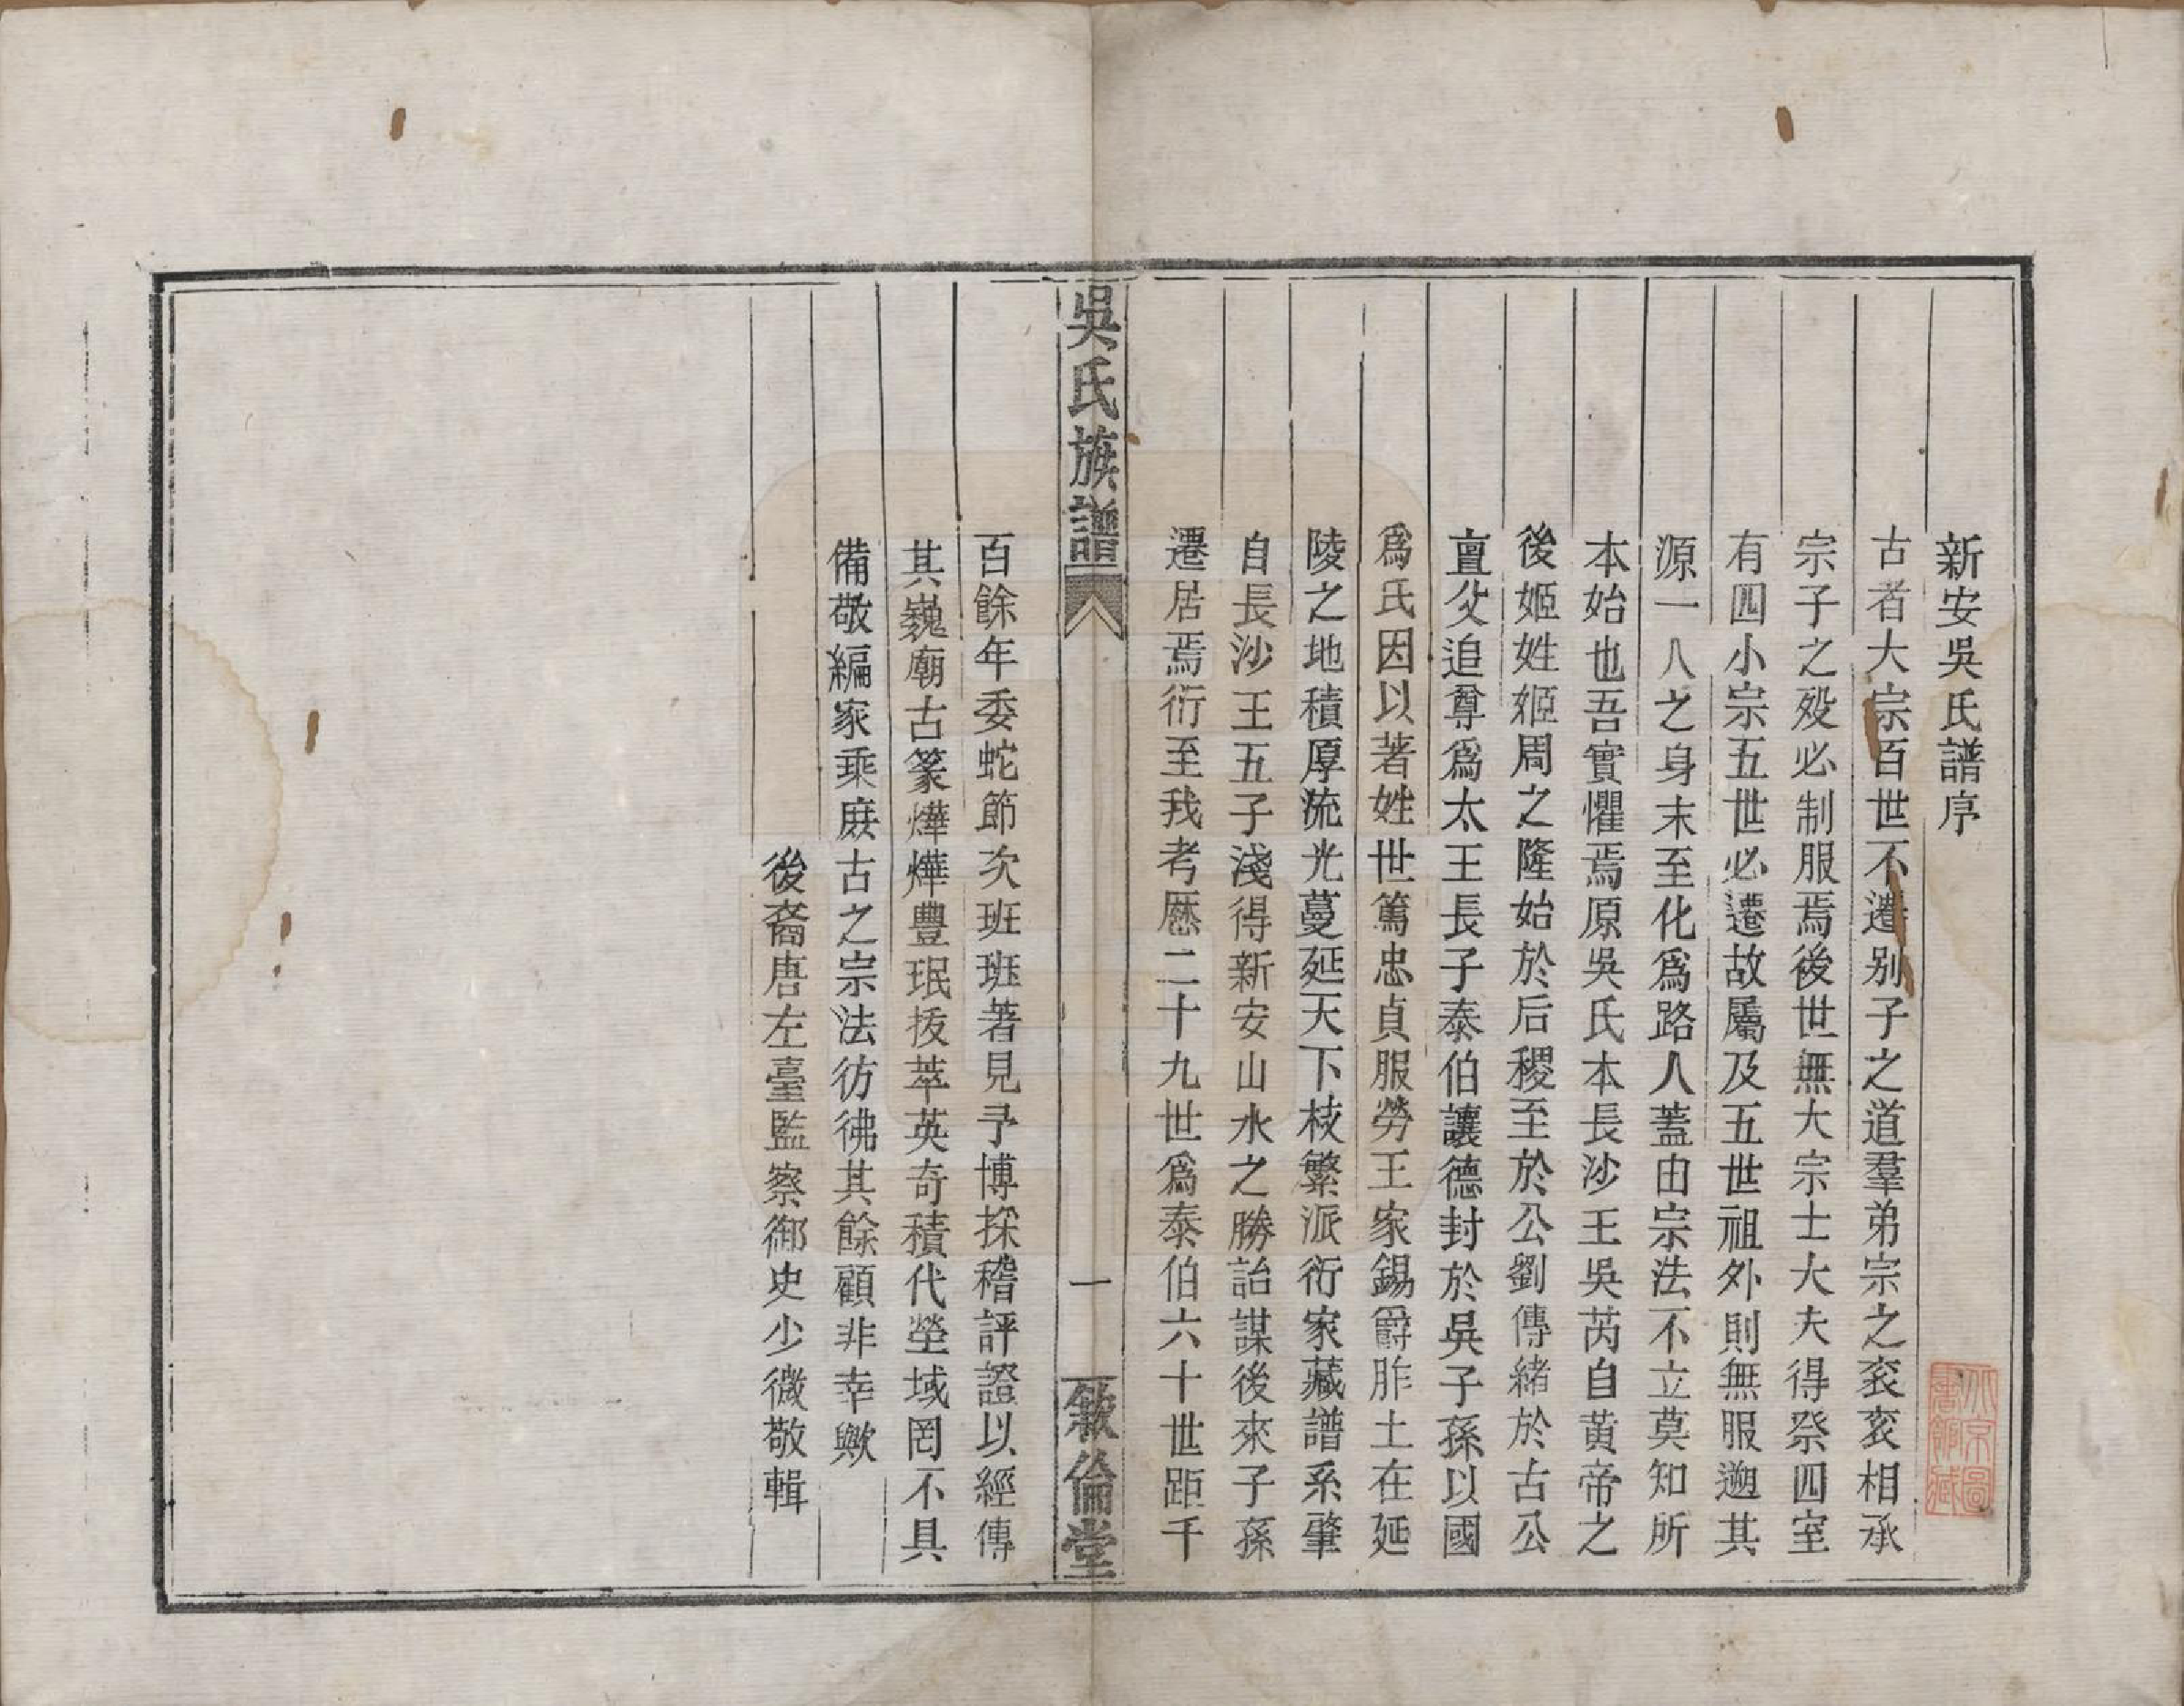 新安吳氏譜序
古者大宗百世不遷别子之道羣弟宗之衮衮相承
宗子之歿必制服焉後世無大宗士大夫得祭四室
有四小宗五世必遷故屬及五世祖外則無服遡其
源一人之身末至化爲路人蓋由宗法不立莫知所
本始也吾實懼焉原吳氏本長沙王吳芮自黄帝之
後姬姓姬周之隆始於后稷至於公劉傳緒於古公
亶父追尊爲太王長子泰伯讓德封於吳子孫以國
爲氏因以著姓世篤忠貞服勞王家錫爵胙土在延
陵之地積厚流光蔓延天下枝繁派衍家藏譜系肇
自長沙王五子淺得新安山水之勝詒謀後來子孫
遷居焉衍至我考歷二十九世爲泰伯六十世距千
吳氏族譜
一
敘倫堂
百餘年委蛇節次班班著見予博採稽評證以經傳
其巍廟古篆燁燁豐珉拔萃英奇積代塋域罔不具
備敬編家乘庶古之宗法彷彿其餘顧非幸歟
後裔唐左臺監察御史少微敬輯
北京圖
書館藏